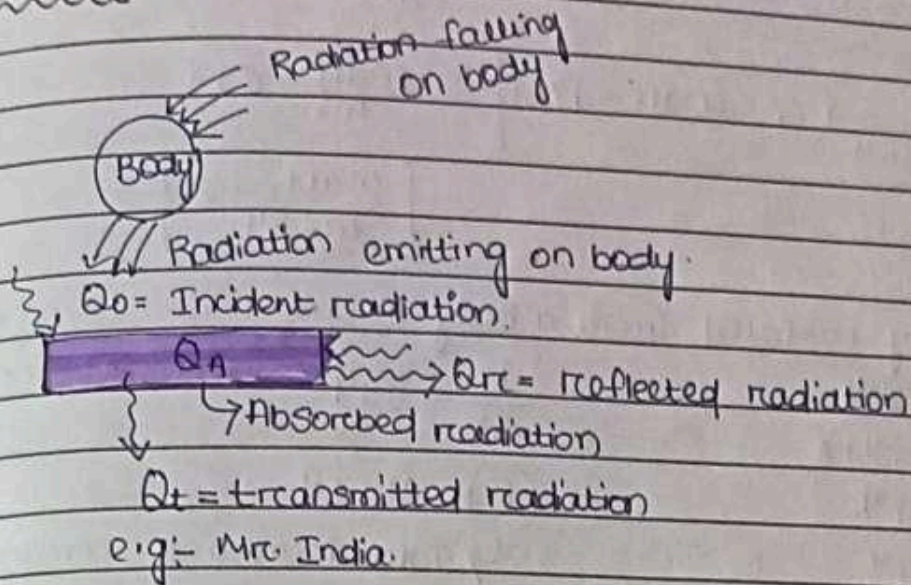 Radiation falling
on body
Body
Radiation emitting on body.
Qo = Incident radiation.
QA
Qr = reflected radiation
Absorbed radiation
Qt = transmitted radiation
e.g:- Mr. India.